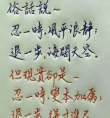 俗話說~
忍一時,風平浪靜;
退一步,海闊天空。
但現實卻是~
忍一時,變本加厲;
退一步,